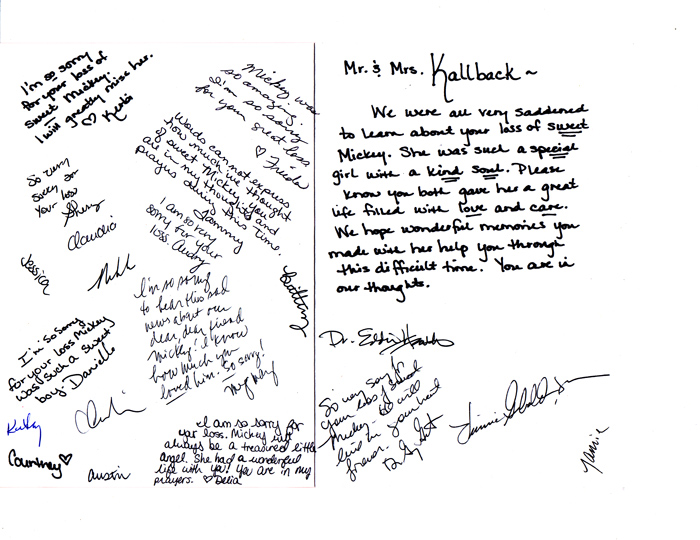 I'm so sorry
for your loss of
sweet Mickey.
I will greatly miss her.
♡ Kerbi
Mickey was
so amazing.
I'm so sorry
for your great loss
♡ Frieda
Words can not express
how much we thought
of sweet Mickey. You
are in my thoughts and
prayers during this time.
Tammy
So very
sorry for
your loss
Sherry
Claudia
Jessica
I am so very
sorry for your
loss. Audry
Brittany
I'm so sorry
to hear this sad
news about our
dear, dear friend
Mickey! I know
how much you
loved him. So sorry!
I'm so sorry
for your loss Mickey
was such a sweet
boy. Danielle
Kathy
Courtney ♡
austin
I am so sorry for
your loss. Mickey will
always be a treasured little
angel. She had a wonderful
life with ya! You are in my
prayers. ♡ Delia
Mr. & Mrs. Kallback ~
We were all very saddened
to learn about your loss of sweet
Mickey. She was such a special
girl with a kind soul. Please
know you both gave her a great
life filled with love and care.
We hope wonderful memories you
made with her help you through
this difficult time. You are in
our thoughts.
Dr. Eddie
So very sorry for
your loss of
Mickey. will
live in your heart
forever.
Jamie